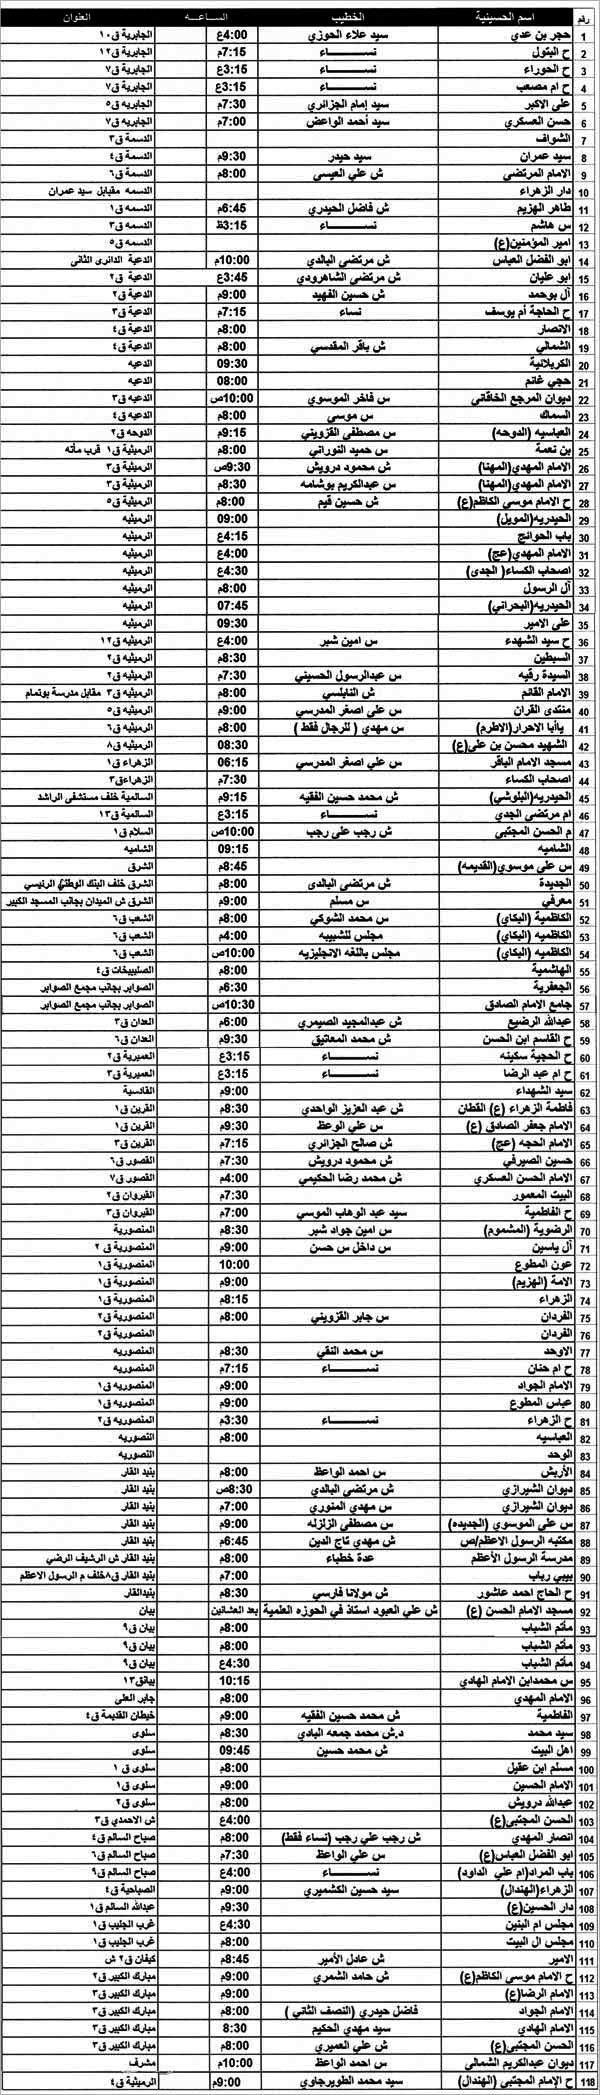 رقم اسم الحسينية الخطيب الساعه العنوان
1 حجر بن عدي سيد علاء الحوزي 4:00ع الجابرية ق١٠
2 ح البتول نساء 7:15م الجابرية ق١٢
3 ح الحوراء نساء 3:15ع الجابرية ق٧
4 ح ام مصعب نساء 3:15ع الجابرية ق٧
5 على الاكبر سيد إمام الجزائري 7:30م الجابريه ق٥
6 حسن العسكري سيد أحمد الواعض 7:00م الجابريه ق٧
7 الشواف الدسمة ق٣
8 سيد عمران سيد حيدر 9:30م الدسمة ق٤
9 الامام المرتضى ش علي العيسى 8:00م الدسمة ق٦
10 دار الزهراء الدسمه مقابل سيد عمران
11 طاهر الهزيم ش فاضل الحيدري 6:45م الدسمه ق١
12 س هاشم نساء 3:15ظ الدسمه ق٣
13 امير المؤمنين(ع) الدسمه ق٥
14 ابو الفضل العباس ش مرتضى البالدي 10:00م الدعية الدائرى الثانى
15 ابو عليان ش مرتضي الشاهرودي 3:45ع الدعية ق٢
16 آل بوحمد ش حسين الفهيد 9:00م الدعية ق٢
17 ح الحاجة أم يوسف نساء 7:15م الدعية ق٣
18 الانصار 8:00م الدعية ق٤
19 الشمالي ش باقر المقدسي 8:00م الدعية ق٤
20 الكربلائية 09:30 الدعيه
21 حجي غانم 08:00 الدعيه
22 ديوان المرجع الخاقاني س فاخر الموسوي 10:00ص الدعيه ق٣
23 السماك س موسى 8:00م الدعيه ق٤
24 العباسيه (الدوحه) س مصطفى القزويني 9:15م الدوحه ق٢
25 بن نعمة س حميد النوراني 8:00م الرميثية ق١ قرب مأته
26 الامام المهدي(المهنا) ش محمود درويش 9:30ص الرميثية ق٣
27 الامام المهدي(المهنا) س عبدالكريم بوشامه 8:30م الرميثية ق٣
28 ح الامام موسى الكاظم(ع) ش حسين قيم 8:00م الرميثية ق٥
29 الحيدريه(المويل) 09:00 الرميثيه
30 باب الحوائج 4:15ع الرميثيه
31 الامام المهدي(عج) 4:00ع الرميثيه
32 اصحاب الكساء( الجدى) 4:30ع الرميثيه
33 آل الرسول 8:00م الرميثيه
34 الحيدريه(البحراني) 07:45 الرميثيه
35 على الامير 09:30 الرميثيه
36 ح سيد الشهداء س امين شبر 4:00ع الرميثيه ق١٢
37 السبطين 8:30م الرميثيه ق٢
38 السيدة رقيه س عبدالرسول الحسيني 7:30م الرميثيه ق٢
39 الامام القائم ش النابلسي 8:00م الرميثيه ق٣ مقابل مدرسة بوتمام
40 منتدى القران س على اصغر المدرسي 9:00م الرميثيه ق٥
41 ياأبا الاحرار(الاطرم) س مهدي ( للرجال فقط ) 8:00م الرميثيه ق٦
42 الشهيد محسن بن على(ع) 08:30 الرميثيه ق٨
43 مسجد الامام الباقر س علي اصغر المدرسي 06:15 الزهراء ق١
44 اصحاب الكساء 7:30م الزهراءق٣
45 الحيدريه(البلوشي) ش محمد حسين الفقيه 9:15م السالمية خلف مستشفى الراشد
46 ام مرتضى الجدي نساء 3:15ع السالمية ق١٣
47 م الحسن المجتبى ش رجب على رجب 10:00ص السلام ق١
48 الشاميه 09:15 الشاميه
49 س على موسوي(القديمه) 8:45م الشرق
50 الجديدة ش مرتضى البالدى 8:00م الشرق خلف البنك الوطني الرئيسي
51 معرفي س مسلم 9:00م الشرق ش الميدان بجانب المسجد الكبير
52 الكاظمية (البكاي) س محمد الشوكي 8:00م الشعب ق٦
53 الكاظميه (البكاي) مجلس للشبيبه 4:00م الشعب ق٦
54 الكاظميه (البكاي) مجلس باللغه الانجليزيه 10:00ص الشعب ق٦
55 الهاشمية 8:00م الصليبيخات ق٤
56 الجعفرية 6:30م الصوابر بجانب مجمع الصوابر
57 جامع الامام الصادق 10:30ص الصوابر بجانب مجمع الصوابر
58 عبدالله الرضيع ش عبدالمجيد الصيمري 6:00م العدان ق٣
59 ح القاسم ابن الحسن ش محمد المعاتيق 9:30م العدان ق٦
60 ح الحجية سكينه نساء 3:15ع العميرية ق٢
61 ح ام عبد الرضا نساء 3:15ع العميرية ق٣
62 سيد الشهداء 9:00م القادسية
63 فاطمة الزهراء (ع) القطان ش عبد العزيز الواحدي 8:30م القرين ق١
64 الامام جعفر الصادق (ع) س علي الوعظ 9:30م القرين ق١
65 الامام الحجه (عج) ش صالح الجزائري 7:15م القرين ق٣
66 حسين الصيرفي ش محمود درويش 7:30م القصور ق٦
67 الامام الحسن العسكري ش محمد رضا الحكيمي 4:00م القصور ق٧
68 البيت المعمور 7:30م القيروان ق٢
69 ح الفاطمية سيد عبد الوهاب الموسي 7:00م القيروان ق٣
70 الرضوية (المشموم) س امين جواد شبر 8:30م المنصورية
71 أل ياسين س داخل س حسن 9:00م المنصورية ق ٢
72 عون المطوع 10:00 المنصورية ق١
73 الامة (الهزيم) 9:00م المنصورية ق١
74 الزهراء 8:15م المنصورية ق١
75 الفردان س جابر القزويني 8:00م المنصورية ق٢
76 الفردان المنصورية ق٢
77 الاوحد س محمد النقي 8:30م المنصوريه
78 ح ام حنان نساء 7:15م المنصوريه
79 الامام الجواد 9:00م المنصوريه ق١
80 عباس المطوع 9:00م المنصوريه ق١
81 ح الزهراء نساء 3:30م المنصوريه ق٢
82 العباسيه 8:00م النصوريه
83 الوحد النصوريه
84 الأربش س احمد الواعظ 8:00م بنيد القار
85 ديوان الشيرازي ش مرتضى البالدي 8:30ص بنيد القار
86 ديوان الشيرازي س مهدي المنوري 7:00م بنيد القار
87 س على الموسوي (الجديده) س مصطفى الزلزله 9:00م بنيد القار
88 مكتبه الرسول الاعظم/ص ش مهدي تاج الدين 6:45م بنيد القار
89 مدرسة الرسول الأعظم عدة خطباء 8:00م بنيد القار ش الرشيف الرضي
90 بيبي رباب 7:00م بنيد القار ق٨خلف م الرسول الاعظم
91 ح الحاج احمد عاشور ش مولانا فارسي 8:30م بنيدالقار
92 مسجد الامام الحسن (ع) ش علي العبود استاذ في الحوزه العلمية بعد العشائين بيان
93 مأتم الشباب 8:00م بيان ق٩
93 مأتم الشباب 8:00م بيان ق٩
94 مأتم الشباب 4:30ع بيان ق٩
95 س محمدابن الامام الهادي 10:15 بيانق١٣
96 الامام المهدي 8:00م جابر العلى
97 الفاطمية ش محمد حسين الفقيه 9:00م خيطان القديمة ق٤
98 سيد محمد د.ش محمد جمعه البادي 8:30م سلوى
99 اهل البيت ش محمد حسين 09:45 سلوى
100 مسلم ابن عقيل 8:00م سلوى ق ١
101 الامام الحسين 9:00م سلوى ق١
102 عبدالله درويش 8:00م سلوى ق٢
103 الحسن المجتبى(ع) 4:00ع ش الاحمدي ق٣
104 انصار المهدي ش رجب علي رجب (نساء فقط) 8:00م صباح السالم ق٤
105 ابو الفضل العباس(ع) س علي الواعظ 7:30م صباح السالم ق٦
106 باب المراد(ام علي الداود) نساء 4:00ع صباح السالم ق٩
107 الزهراء(الهندال) سيد حسين الكشميري 9:00م الصباحية ق٤
108 دار الحسين(ع) 9:30م عبدالله السالم ق١
109 مجلس ام البنين 4:30ع غرب الجليب ق١
110 مجلس ال البيت 8:00م غرب الجليب ق١
111 الامير ش عادل الأمير 8:45م كيفان ق٢ ش
112 ح الامام موسى الكاظم(ع) ش حامد الشمري 9:00م مبارك الكبير ق٢
113 الامام الرضا(ع) 9:00م مبارك الكبير ق٣
114 الامام الجواد فاضل حيدري (النصف الثاني ) 8:00م مبارك الكبير ق٣
115 الامام الهادي سيد مهدي الحكيم 8:30 مبارك الكبير ق٣
116 الحسن المجتبى(ع) ش علي العميري 8:00م مبارك الكبير ق٣
117 ديوان عبدالكريم الشمالى س احمد الواعظ 10:00م مشرف
118 ح الإمام المجتبى (الهندال) سيد محمد الطويرجاوي 9:00م الرميثية ق٤